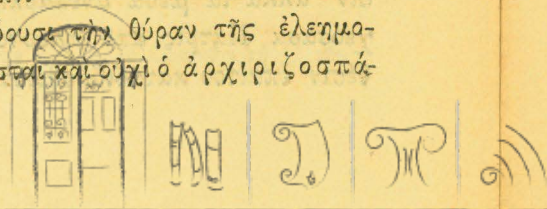 ουσι τὴν θύραν τῆς ἐλεημο-
σται καὶ οὐχὶ ὁ ἀρχιριζοσπά-